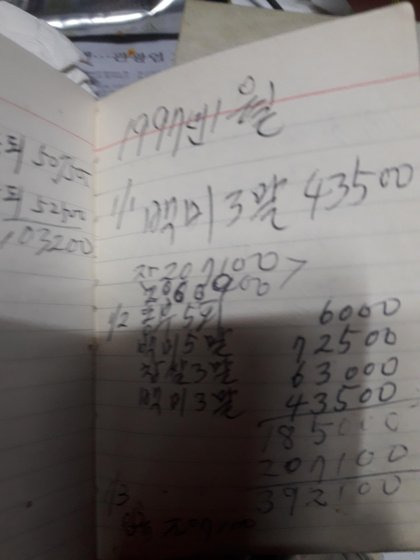 관광업
퇴 50700
퇴 52500
103200
1997년 1월
1/1 백미 3말 43500
잔 207100
1/2
6000
백미 5말 72500
찹쌀 3말 63000
백미 3말 43500
185000
207100
392100
1/3